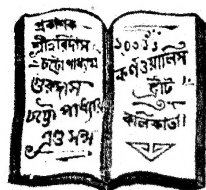 প্রকাশক
শ্রীহরিদাস
চট্টোপাধ্যায়
গুরুদাস
চট্টোপাধ্যায়
এণ্ড সন্স
কর্ণওয়ালিস
ষ্ট্রীট
কলিকাতা।